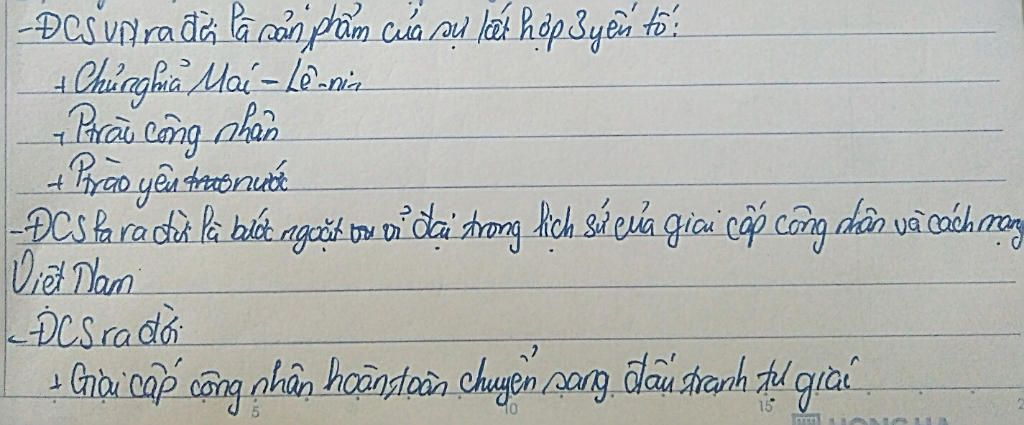 - ĐCSVN ra đời là sản phẩm của sự kết hợp 3 yếu tố:
+ Chủ nghĩa Mác - Lê-nin
+ Ptrào công nhân
+ Ptrào yêu nước
- ĐCS ta ra đời là bước ngoặt vĩ đại trong lịch sử của giai cấp công nhân và cách mạng
Việt Nam
- ĐCS ra đời
+ Giai cấp công nhân hoàn toàn chuyển sang đấu tranh tự giác
5 10 15